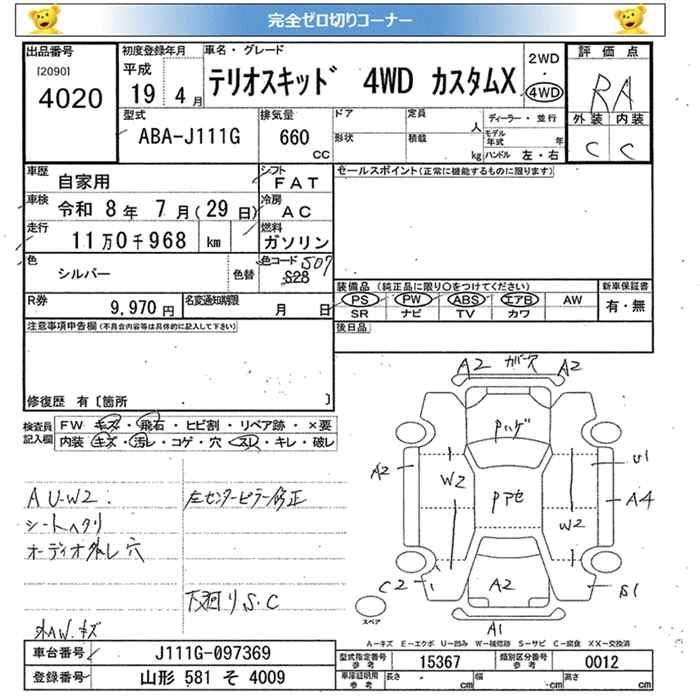 完全ゼロ切りコーナー
出品番号 初度登録年月 車名・グレード 2WD・4WD 評価点
[2090] 4020 平成 19 4月 テリオスキッド 4WD カスタムX RA
型式 ABA-J111G 排気量 660 cc ドア 定員 人 ディーラー・並行 外装 内装
形状 積載 kg モデル年式 年 ハンドル 左・右 C C
車歴 自家用 シフト FAT セールスポイント(正常に機能するものに限ります)
車検 令和 8年 7月(29日) 冷房 AC
走行 11万0千968 km 燃料 ガソリン
色 シルバー 色替 色コード S28 S07
装備品(純正品に限り○をつけてください) 新車保証書
R券 9,970円 名変通知期限 月 日 PS PW ABS エアB AW 有・無
SR ナビ TV カワ
注意事項申告欄(不具合内容等は具体的に記入して下さい) 後日品
修復歴 有〔箇所 〕
検査員記入欄 FW キズ・飛石・ヒビ割・リペア跡・×要
内装 キズ・汚レ・コゲ・穴・スレ・キレ・破レ
A2 ガバ欠 A2
Pハゲ
A2 W2 U1
Pアセ A4
W2
C2 A2 S1
A1
AU-W2: 左センターピラー修正
シートヘタリ
オーディオ外し穴
下廻りS.C
外AW.キズ
スペア
A-キズ E-エクボ U-凹み W-補修跡 S-サビ C-腐食 XX-交換済
車台番号 J111G-097369 型式指定番号 参考 15367 類別区分番号 参考 0012
登録番号 山形 581 そ 4009 車庫証明用 参考 長さ cm 幅 cm 高さ cm